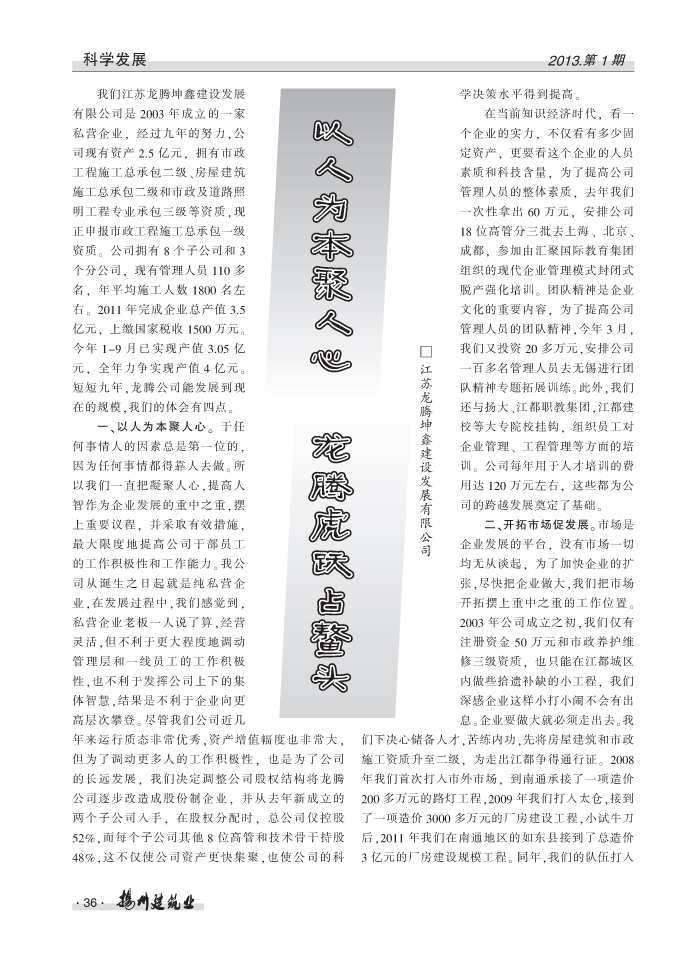 科学发展
2013.第 1 期
以人为本聚人心
龙腾虎跃占鳌头
□ 江苏龙腾坤鑫建设发展有限公司
我们江苏龙腾坤鑫建设发展
有限公司是 2003 年成立的一家
私营企业，经过九年的努力,公
司现有资产 2.5 亿元，拥有市政
工程施工总承包二级、房屋建筑
施工总承包二级和市政及道路照
明工程专业承包三级等资质,现
正申报市政工程施工总承包一级
资质。公司拥有 8 个子公司和 3
个分公司，现有管理人员 110 多
名，年平均施工人数 1800 名左
右。2011 年完成企业总产值 3.5
亿元，上缴国家税收 1500 万元。
今年 1-9 月已实现产值 3.05 亿
元，全年力争实现产值 4 亿元。
短短九年,龙腾公司能发展到现
在的规模,我们的体会有四点。
一、以人为本聚人心。于任
何事情人的因素总是第一位的，
因为任何事情都得靠人去做。所
以我们一直把凝聚人心,提高人
智作为企业发展的重中之重,摆
上重要议程，并采取有效措施，
最大限度地提高公司干部员工
的工作积极性和工作能力。我公
司从诞生之日起就是纯私营企
业,在发展过程中,我们感觉到，
私营企业老板一人说了算,经营
灵活,但不利于更大程度地调动
管理层和一线员工的工作积极
性,也不利于发挥公司上下的集
体智慧,结果是不利于企业向更
高层次攀登。尽管我们公司近几
年来运行质态非常优秀,资产增值幅度也非常大，
但为了调动更多人的工作积极性，也是为了公司
的长远发展，我们决定调整公司股权结构将龙腾
公司逐步改造成股份制企业，并从去年新成立的
两个子公司入手，在股权分配时，总公司仅控股
52%,而每个子公司其他 8 位高管和技术骨干持股
48%,这不仅使公司资产更快集聚,也使公司的科
学决策水平得到提高。
在当前知识经济时代，看一
个企业的实力，不仅看有多少固
定资产，更要看这个企业的人员
素质和科技含量，为了提高公司
管理人员的整体素质，去年我们
一次性拿出 60 万元，安排公司
18 位高管分三批去上海、北京、
成都，参加由汇聚国际教育集团
组织的现代企业管理模式封闭式
脱产强化培训。团队精神是企业
文化的重要内容，为了提高公司
管理人员的团队精神,今年 3 月，
我们又投资 20 多万元,安排公司
一百多名管理人员去无锡进行团
队精神专题拓展训练。此外,我们
还与扬大、江都职教集团,江都建
校等大专院校挂钩，组织员工对
企业管理、工程管理等方面的培
训。公司每年用于人才培训的费
用达 120 万元左右，这些都为公
司的跨越发展奠定了基础。
二、开拓市场促发展。市场是
企业发展的平台，没有市场一切
均无从谈起，为了加快企业的扩
张,尽快把企业做大,我们把市场
开拓摆上重中之重的工作位置。
2003 年公司成立之初,我们仅有
注册资金 50 万元和市政养护维
修三级资质，也只能在江都城区
内做些拾遗补缺的小工程，我们
深感企业这样小打小闹不会有出
息。企业要做大就必须走出去。我
们下决心储备人才,苦练内功,先将房屋建筑和市政
施工资质升至二级，为走出江都争得通行证。2008
年我们首次打入市外市场，到南通承接了一项造价
200 多万元的路灯工程,2009 年我们打入太仓,接到
了一项造价 3000 多万元的厂房建设工程,小试牛刀
后,2011 年我们在南通地区的如东县接到了总造价
3 亿元的厂房建设规模工程。同年,我们的队伍打入
· 36 · 扬州建筑业